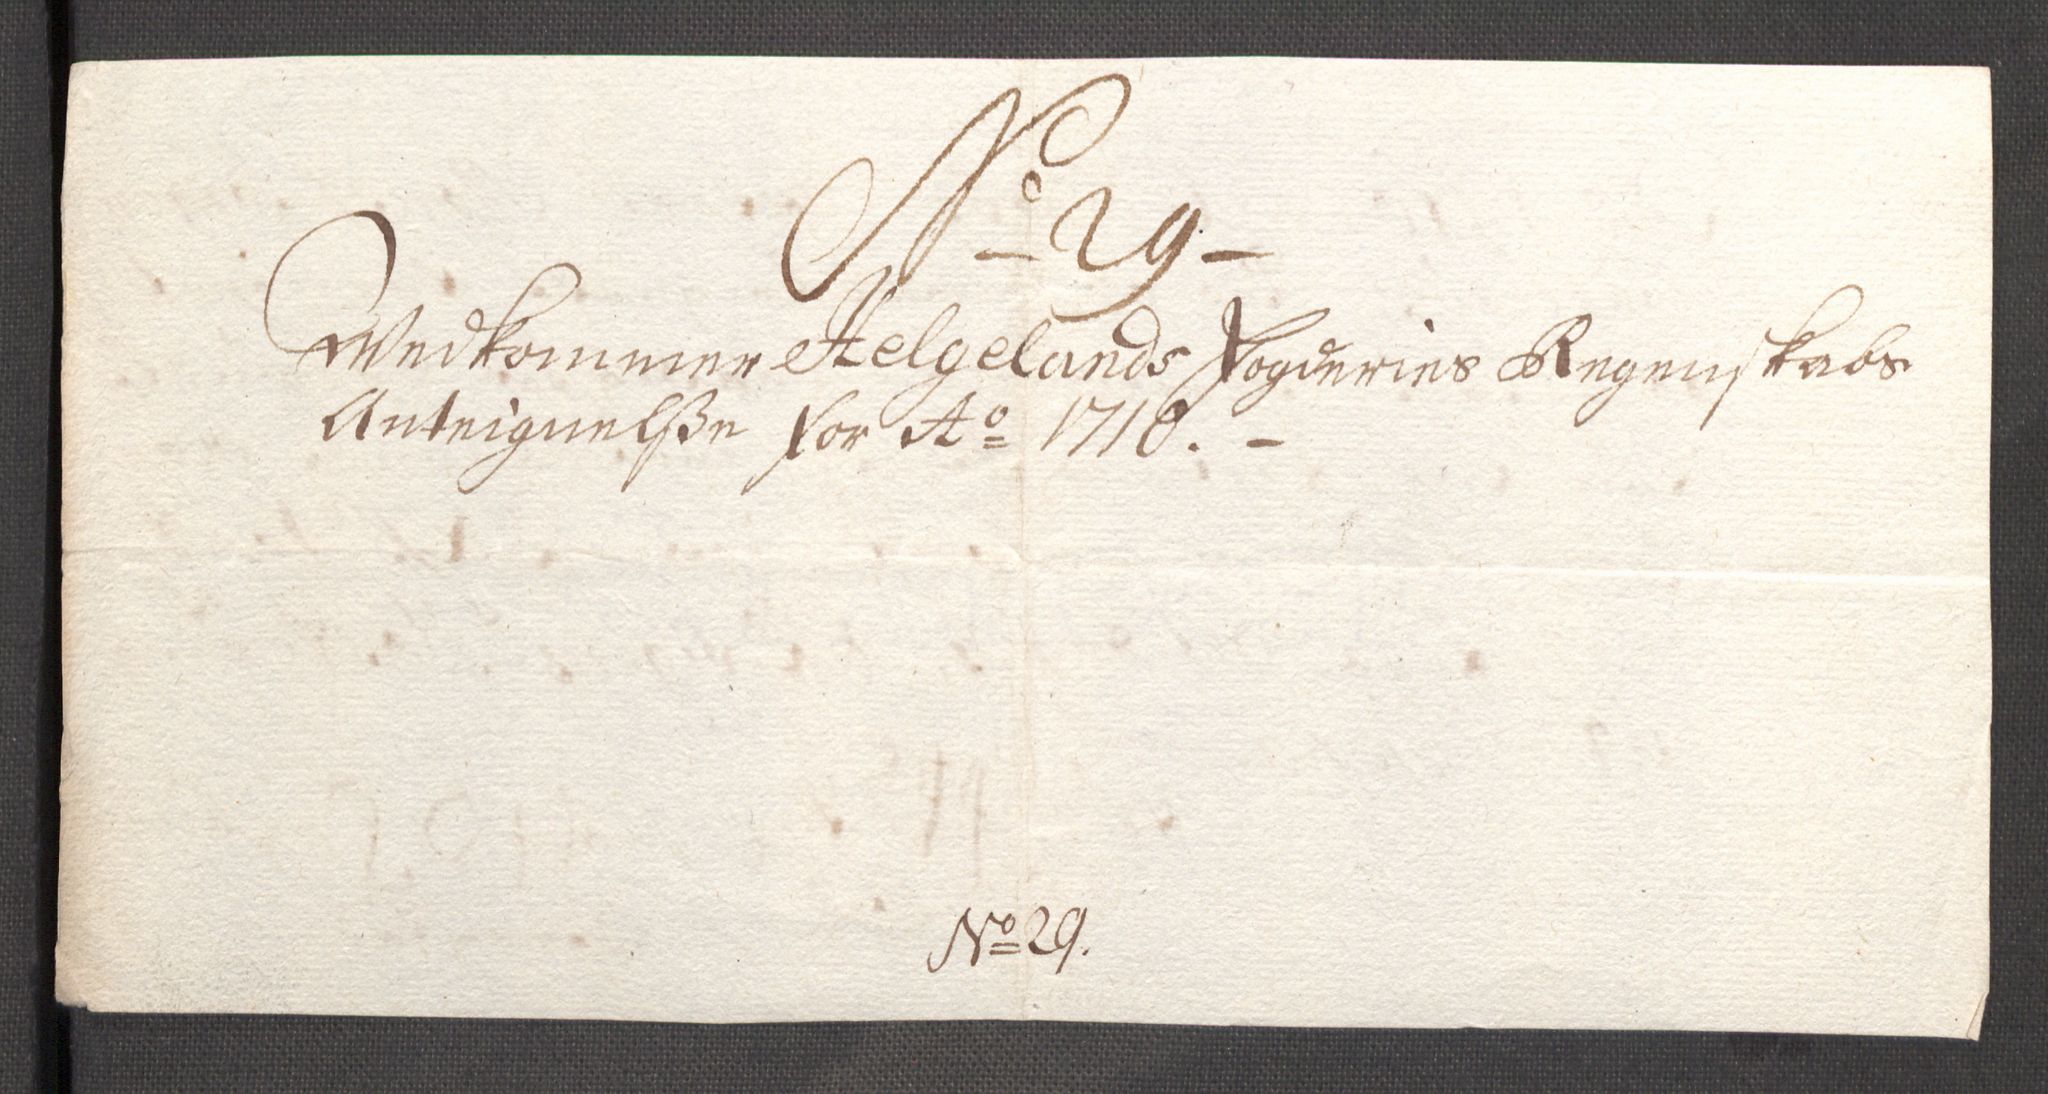 No 29
Wedkommer Helgelands Fogderies Regenskabs
Anteignelsße for Ao 1710.
No 29.